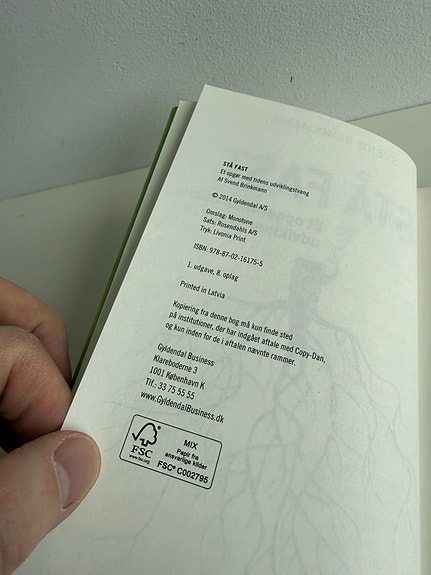 STÅ FAST
Et opgør med tidens udviklingstvang
Af Svend Brinkmann
© 2014 Gyldendal A/S
Omslag: Monotone
Sats: Rosendahls A/S
Tryk: Livonia Print
ISBN: 978-87-02-16175-5
1. udgave, 8. oplag
Printed in Latvia
Kopiering fra denne bog må kun finde sted
på institutioner, der har indgået aftale med Copy-Dan,
og kun inden for de i aftalen nævnte rammer.
Gyldendal Business
Klareboderne 3
1001 København K
Tlf.: 33 75 55 55
www.GyldendalBusiness.dk
FSC
www.fsc.org
MIX
Papir fra
ansvarlige kilder
FSC® C002795